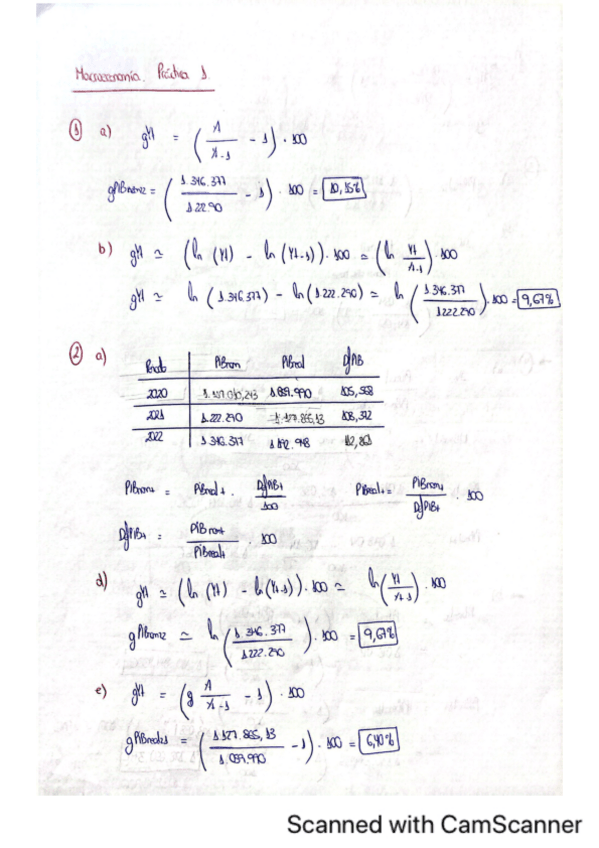 Macroeconomía. Práctica 1.
① a) gYt = (Yt / Yt-1 - 1) · 100
gPIBnom22 = (1.346.377 / 1.222.290 - 1) · 100 = 10,15%
b) gYt ≃ (ln (Yt) - ln (Yt-1)) · 100 = (ln Yt / Yt-1) · 100
gYt ≃ ln (1.346.377) - ln (1.222.290) = ln (1.346.377 / 1.222.290) · 100 = 9,67%
② a)
Periodo PIBnom PIBreal DfPIB
2020 105,558
2021 1.222.290 1.127.865,13 108,372
2022 1.346.377 1.192.948
PIBnomt = PIBrealt · DfPIBt / 100 PIBrealt = PIBnomt / DfPIBt · 100
DfPIBt = PIBnomt / PIBrealt · 100
d) gYt ≃ (ln (Yt) - ln (Yt-1)) · 100 ≃ ln (Yt / Yt-1) · 100
gPIBnom22 ≃ ln (1.346.377 / 1.222.290) · 100 = 9,67%
e) gYt = (Yt / Yt-1 - 1) · 100
gPIBreal21 = (1.127.865,13 / 1.059.990 - 1) · 100 = 6,40%
Scanned with CamScanner